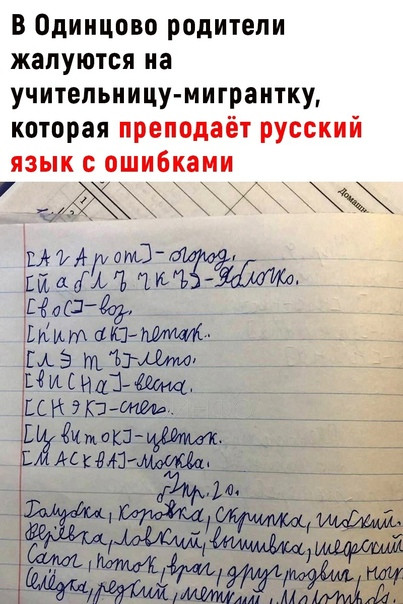 В Одинцово родители
жалуются на
учительницу-мигрантку,
которая преподаёт русский
язык с ошибками
Домашн
[АгАрот]-огород.
[йаблъчкъ]-Яблочко.
[воС]-воз.
[п'итак]-петак.
[лэтъ]-лето.
[вИСНа]-весна.
[СНЭК]-снег.
[ЦвитоК]-цветок.
[МАСКВА]-Москва.
Упр. 20.
Голубка, коровка, скрипка, гибкий.
Верёвка, ловкий, вышивка, шефский
Сапог, поток, враг, друг, подвиг,
Селёдка, редкий, меткий,